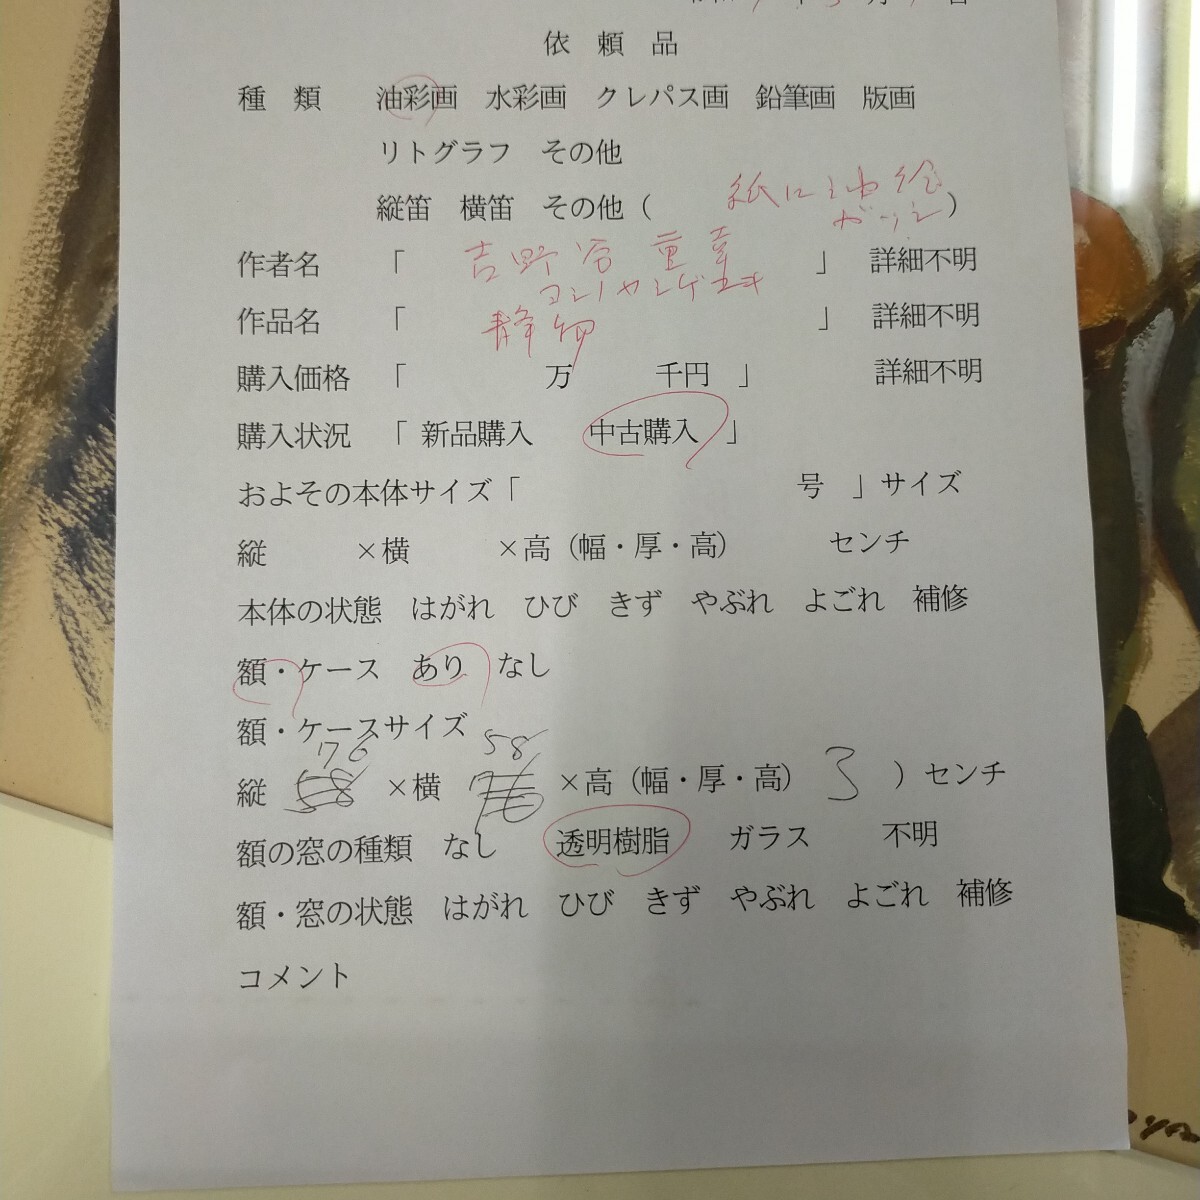 依 頼 品
種 類 油彩画 水彩画 クレパス画 鉛筆画 版画
リトグラフ その他
縦笛 横笛 その他（ 紙に油絵 ガッシ ）
作者名 「 吉野谷 重幸 」 詳細不明
作品名 「 静物 」 詳細不明
購入価格 「 万 千円 」 詳細不明
購入状況 「 新品購入 中古購入 」
およその本体サイズ「 号 」サイズ
縦 ×横 ×高（幅・厚・高） センチ
本体の状態 はがれ ひび きず やぶれ よごれ 補修
額・ケース あり なし
額・ケースサイズ
76 58
縦 58 ×横 76 ×高（幅・厚・高） 3 ）センチ
額の窓の種類 なし 透明樹脂 ガラス 不明
額・窓の状態 はがれ ひび きず やぶれ よごれ 補修
コメント